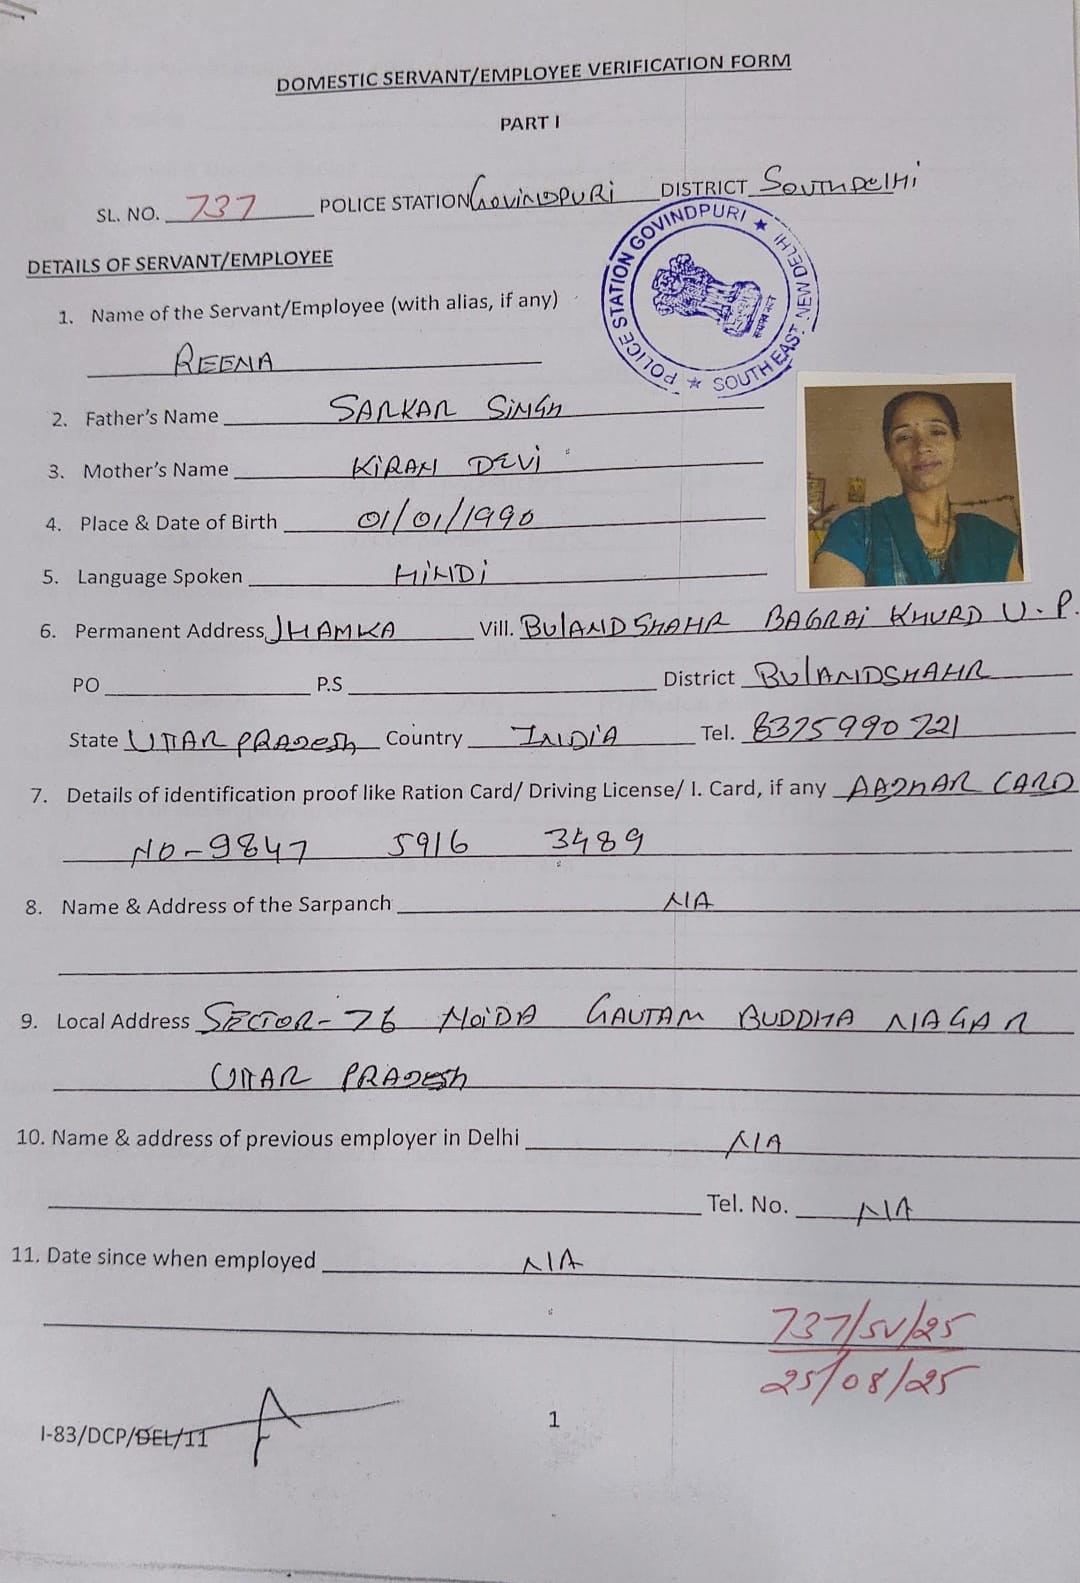 DOMESTIC SERVANT/EMPLOYEE VERIFICATION FORM
PART I
SL. NO. 737 POLICE STATION GOVINDPURI DISTRICT SOUTH DELHI
POLICE STATION GOVINDPURI ★ SOUTH EAST, NEW DELHI ★
सत्यमेव जयते
DETAILS OF SERVANT/EMPLOYEE
1. Name of the Servant/Employee (with alias, if any)
REENA
2. Father's Name SARKAR SINGH
3. Mother's Name KIRAN DEVI
4. Place & Date of Birth 01/01/1990
5. Language Spoken HINDI
6. Permanent Address JHAMKA Vill. BULANDSHAHR BAGRAI KHURD U.P.
PO P.S District BULANDSHAHR
State UTTAR PRADESH Country INDIA Tel. 8375990721
7. Details of identification proof like Ration Card/ Driving License/ I. Card, if any AADHAR CARD
NO-9847 5916 3489
8. Name & Address of the Sarpanch NA
9. Local Address SECTOR-76 NOIDA GAUTAM BUDDHA NAGAR
UTTAR PRADESH
10. Name & address of previous employer in Delhi NA
Tel. No. NA
11. Date since when employed NA
737/SV/25
25/08/25
I-83/DCP/DEL/11
1